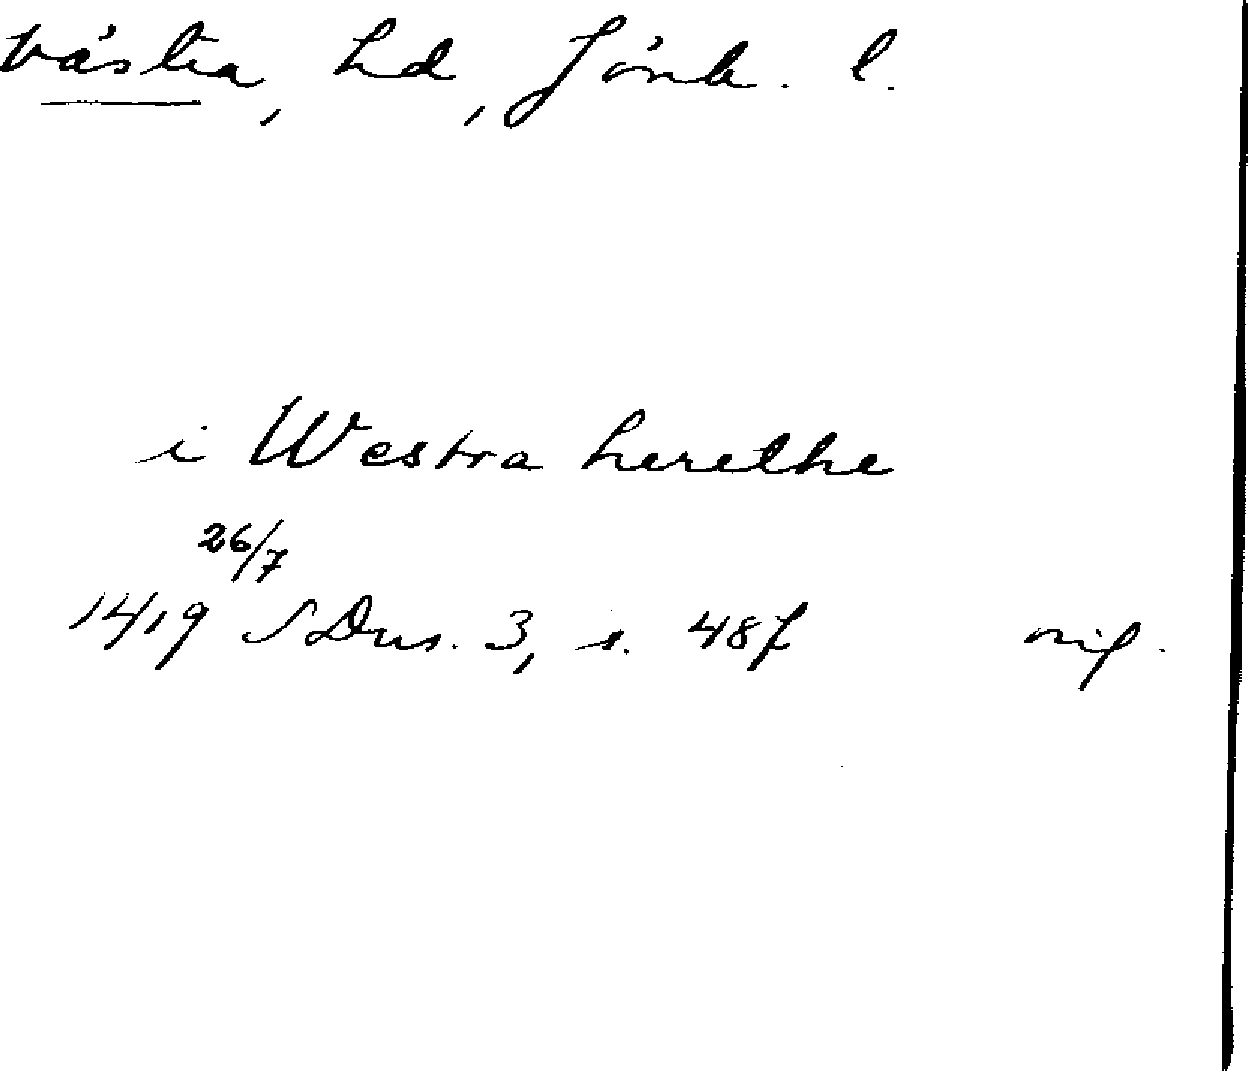 Västra, hd, Jönk. l.
i Westra herethe
26/7
1419 SDns. 3, s. 487 orig.